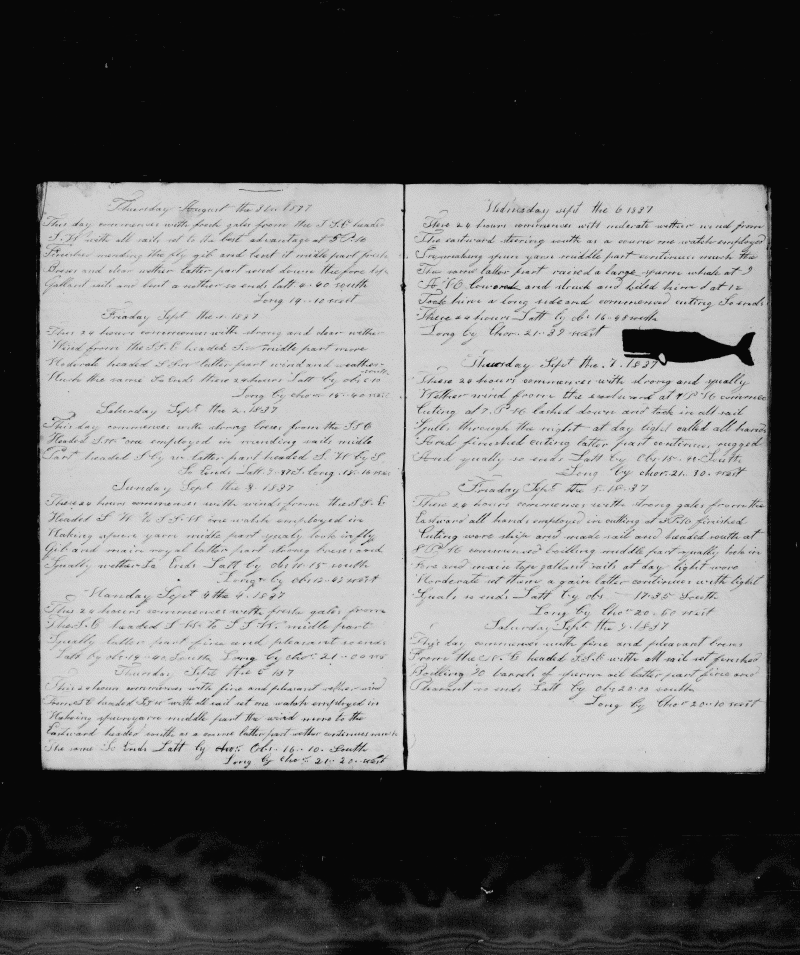 Thursday August the 31 1837
This day commences with fresh gales from the S.S.E headed
S.W with all sail set to the best advantage at 5 P.M
Finished mending the fly gib and bent it middle part fresh
Breses and clear wether latter part
Gallant sail and bent a nother so ends latt 8-40 south
Long 14-10 west
Friaday Sept the 1 1837
This 24 hours commences with strong and clear wether
Wind from the S.S.E headed S.W middle part more
Moderate headed S.S.W latter part wind and weather
Much the same So Ends these 24 hours Latt by obs 10
south
Long by chor 15-40 west
Saturday Sept the 2 1837
This day commences with strong breses from the S.S.E
Headed S.W one employed in mending sails midle
Part headed S by W latter part headed S.W by S
So Ends Latt Long 18-16 west
Sunday Sept the 3 1837
These 24 hours commences with winds from the S.S.E
Headed S.W to S.S.W one watch employed in
Making spun yarn midle part squaly took in fly
Gib and main royal latter part strong breses and
Squally wether So Ends Latt by obs 10-15 south
Long by obs 12-42 west
Monday Sept the 4 1837
This 24 hours commences with fresh gales from
The S.E headed S.W to S.S.W middle part
Squally latter part fine and pleasant so ends
Latt by obs 14-40 South Long by chor 21-00 west
Thursday Sept the 5 1837
This 24 hours commences with fine and pleasant wether wind
From S.E headed S.S.W with all sail set one watch employed in
Making spunyarn middle part the wind more to the
Eastward headed south as a course latter part wether continues much
The same So Ends Latt by chor Obs 16-10 South
Long by chor 21-20 west
Wednesday sept the 6 1837
These 24 hours commences with moderate wether wind from
The eastward stearing south as a course one watch employed
In making spun yarn middle part continues much the
The same latter part raised a large sperm whale at 9
A.M lowered and struck and kiled him d at 12
Took him a long side and commenced cuting So ends
These 24 hours Latt by ob 16-48 south
Long by Chor 21-39 west
Thursday Sept the 7 1837
These 24 hours commences with strong and squally
Wether wind from the eastward at 4 P.M commence
Cuting at 7 P.M lashed down and took in all sail
Until through the night at day light called all hands
And finished cuting latter part continues rugged
And squally so ends Latt by Obs 18 South
Long by chor 21-30 west
Friaday Sept the 8 1837
These 24 hours commences with strong gales from the
Eastward all hands employed in cutting at 5 P.M finished
Cuting wore ship and made sail and headed south at
8 P.M commenced boiling middle part squally took in
Fore and main top gallant sails at day light more
Moderate set them a gain latter continues with light
Squals so ends Latt by obs 17-35 South
Long by Chor 20-50 west
Saturday Sept the 9 1837
This day commences with fine and pleasant breses
From the N.E headed S.S.E with all sail set finished
Boiling 70 barels of sperm oil latter part fine and
Pleasant so ends Latt by obs 20-00 south
Long by Chor 20-10 west